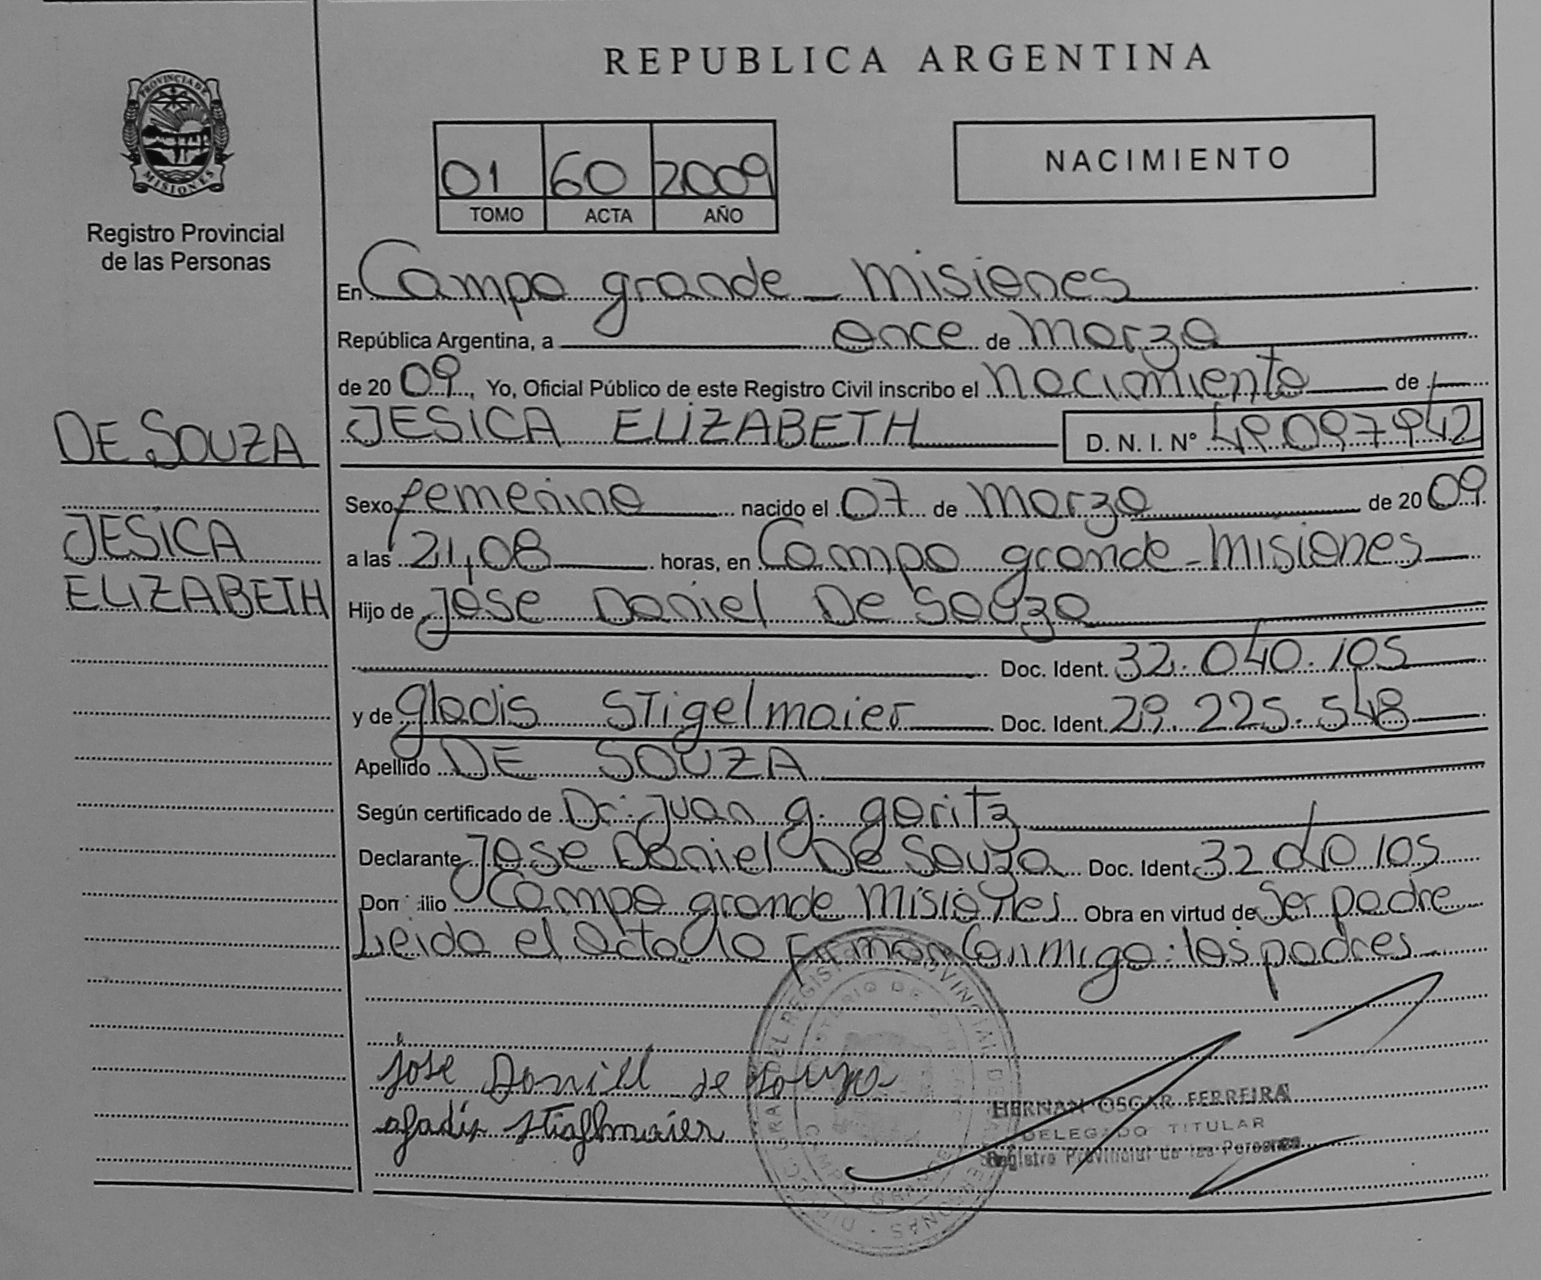 REPUBLICA ARGENTINA
PROVINCIA DE
MISIONES
Registro Provincial
de las Personas
01 60 2009
TOMO ACTA AÑO
NACIMIENTO
En Campo grande - Misiones
República Argentina, a once de Marzo
de 2009, Yo, Oficial Público de este Registro Civil inscribo el Nacimiento de
DE SOUZA
JESICA ELIZABETH D. N. I. Nº
JESICA
ELIZABETH
Sexo femenino nacido el 07 de Marzo de 2009
a las 21,08 horas, en Campo grande - Misiones
Hijo de José Daniel De Souza
Doc. Ident. 32.040.105
y de gladis STigelmaier Doc. Ident. 29.225.548
Apellido DE SOUZA
Según certificado de Dr. Juan g. goritz
Declarante José Daniel De Souza Doc. Ident. 32040105
Domicilio Campo grande Misiones Obra en virtud de Ser padre
Leida el Acta la firman Conmigo: los padres
José Daniel de Souza
gladis Stigelmaier
HERNAN OSCAR FERREIRA
DELEGADO TITULAR
Registro Provincial de las Personas